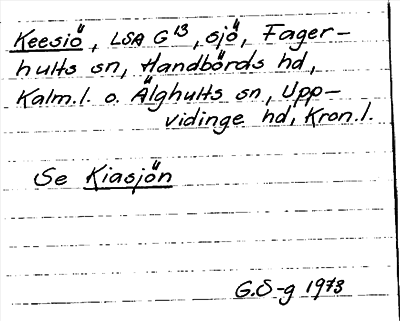 Keesiö, LSA G¹³, sjö, Fager-
hults sn, Handbörds hd,
Kalm.l. o. Älghults sn, Upp-
vidinge hd, Kron.l.
Se Kiasjön
G.S-g 1973